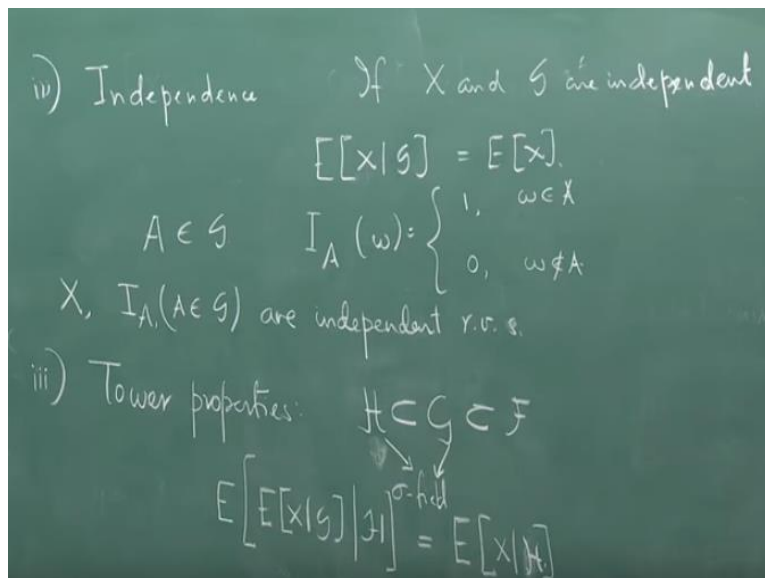 iv) Independence If X and G are independent
E[X|G] = E[X].
A ∈ G I_A (ω) = { 1, ω ∈ A
0, ω ∉ A.
X, I_A, (A ∈ G) are independent r.v.s.
iii) Tower properties: H ⊂ G ⊂ F
σ-field
E[E[X|G]|H] = E[X|H]